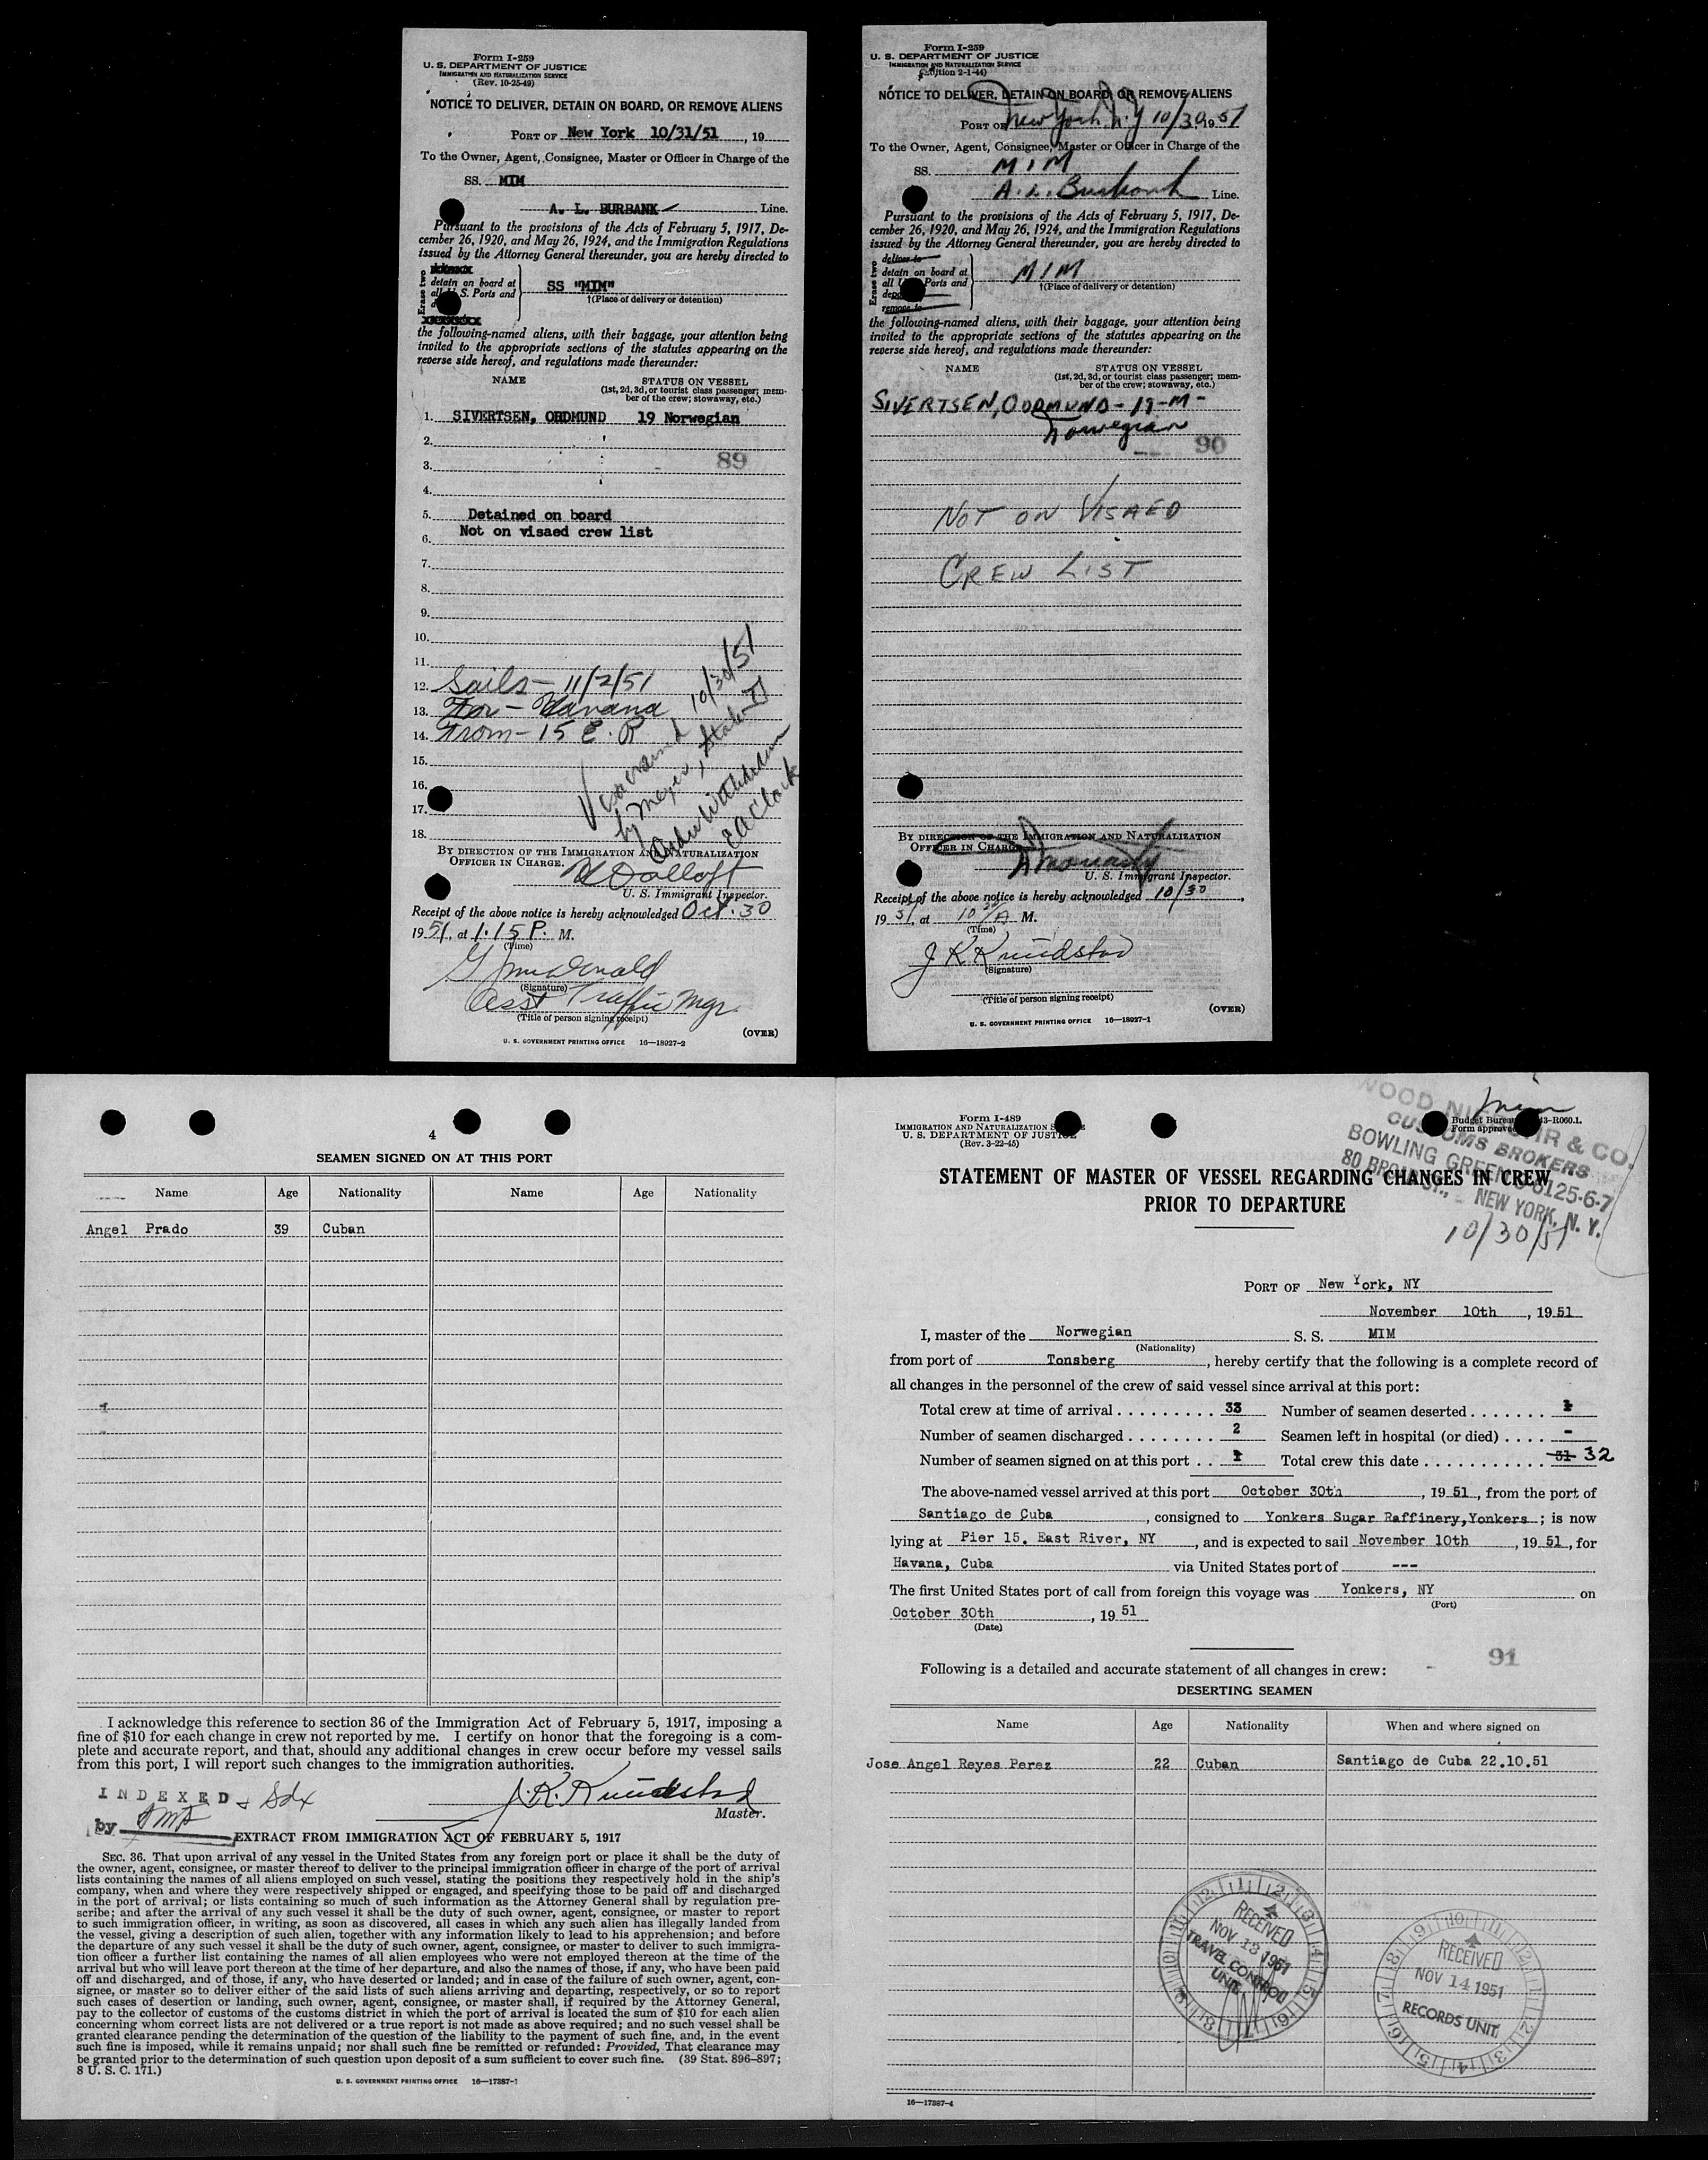 Form I-259
U. S. DEPARTMENT OF JUSTICE
IMMIGRATION AND NATURALIZATION SERVICE
(Rev. 10-25-49)
NOTICE TO DELIVER, DETAIN ON BOARD, OR REMOVE ALIENS
PORT OF New York 10/31/51, 19
To the Owner, Agent, Consignee, Master or Officer in Charge of the
SS. MIM
A. L. BURBANK Line.
Pursuant to the provisions of the Acts of February 5, 1917, De-
cember 26, 1920, and May 26, 1924, and the Immigration Regulations
issued by the Attorney General thereunder, you are hereby directed to
Erase two
detain on board at
all U. S. Ports and
SS "MIM"
†(Place of delivery or detention)
the following-named aliens, with their baggage, your attention being
invited to the appropriate sections of the statutes appearing on the
reverse side hereof, and regulations made thereunder:
NAME STATUS ON VESSEL
(1st, 2d, 3d, or tourist class passenger; mem-
ber of the crew; stowaway, etc.)
1. SIVERTSEN, ORDMUND 19 Norwegian
2.
3. 89
4.
5. Detained on board
6. Not on visaed crew list
7.
8.
9.
10.
11.
12. Sails - 11/2/51
13. For - Havana
14. From - 15 E. R
15.
16.
17.
18.
10/30/51
by Meyer, State
Order Withdrawn
BY DIRECTION OF THE IMMIGRATION AND NATURALIZATION
OFFICER IN CHARGE.
U. S. Immigrant Inspector.
Receipt of the above notice is hereby acknowledged Oct. 30
1951, at 1.15 P. M.
(Time)
(Signature)
Asst Traffic Mgr.
(Title of person signing receipt)
(OVER)
U. S. GOVERNMENT PRINTING OFFICE 16—18027-2
Form I-259
U. S. DEPARTMENT OF JUSTICE
IMMIGRATION AND NATURALIZATION SERVICE
(Edition 2-1-44)
NOTICE TO DELIVER, DETAIN ON BOARD, OR REMOVE ALIENS
PORT OF New York N.Y 10/30, 1951
To the Owner, Agent, Consignee, Master or Officer in Charge of the
SS. MIM
A. L. Burbank Line.
Pursuant to the provisions of the Acts of February 5, 1917, De-
cember 26, 1920, and May 26, 1924, and the Immigration Regulations
issued by the Attorney General thereunder, you are hereby directed to
Erase two
deliver to
detain on board at
all U. S. Ports and
remove to
MIM
†(Place of delivery or detention)
the following-named aliens, with their baggage, your attention being
invited to the appropriate sections of the statutes appearing on the
reverse side hereof, and regulations made thereunder:
NAME STATUS ON VESSEL
(1st, 2d, 3d, or tourist class passenger; mem-
ber of the crew; stowaway, etc.)
SIVERTSEN, ODDMUND - 19 - M -
Norwegian
90
NOT ON VISAED
CREW LIST
BY DIRECTION OF THE IMMIGRATION AND NATURALIZATION
OFFICER IN CHARGE
U. S. Immigrant Inspector.
Receipt of the above notice is hereby acknowledged 10/30,
1951, at 10 30/A M.
(Time)
J K Knudstad
(Signature)
(Title of person signing receipt)
(OVER)
U. S. GOVERNMENT PRINTING OFFICE 16—18027-1
4
SEAMEN SIGNED ON AT THIS PORT
Name Age Nationality Name Age Nationality
Angel Prado 39 Cuban
I acknowledge this reference to section 36 of the Immigration Act of February 5, 1917, imposing a
fine of $10 for each change in crew not reported by me. I certify on honor that the foregoing is a com-
plete and accurate report, and that, should any additional changes in crew occur before my vessel sails
from this port, I will report such changes to the immigration authorities.
INDEXED
by
J. K. Knudstad
Master.
EXTRACT FROM IMMIGRATION ACT OF FEBRUARY 5, 1917
SEC. 36. That upon arrival of any vessel in the United States from any foreign port or place it shall be the duty of
the owner, agent, consignee, or master thereof to deliver to the principal immigration officer in charge of the port of arrival
lists containing the names of all aliens employed on such vessel, stating the positions they respectively hold in the ship's
company, when and where they were respectively shipped or engaged, and specifying those to be paid off and discharged
in the port of arrival; or lists containing so much of such information as the Attorney General shall by regulation pre-
scribe; and after the arrival of any such vessel it shall be the duty of such owner, agent, consignee, or master to report
to such immigration officer, in writing, as soon as discovered, all cases in which any such alien has illegally landed from
the vessel, giving a description of such alien, together with any information likely to lead to his apprehension; and before
the departure of any such vessel it shall be the duty of such owner, agent, consignee, or master to deliver to such immigra-
tion officer a further list containing the names of all alien employees who were not employed thereon at the time of the
arrival but who will leave port thereon at the time of her departure, and also the names of those, if any, who have been paid
off and discharged, and of those, if any, who have deserted or landed; and in case of the failure of such owner, agent, con-
signee, or master so to deliver either of the said lists of such aliens arriving and departing, respectively, or so to report
such cases of desertion or landing, such owner, agent, consignee, or master shall, if required by the Attorney General,
pay to the collector of customs of the customs district in which the port of arrival is located the sum of $10 for each alien
concerning whom correct lists are not delivered or a true report is not made as above required; and no such vessel shall be
granted clearance pending the determination of the question of the liability to the payment of such fine, and, in the event
such fine is imposed, while it remains unpaid; nor shall such fine be remitted or refunded: Provided, That clearance may
be granted prior to the determination of such question upon deposit of a sum sufficient to cover such fine. (39 Stat. 896-897;
8 U. S. C. 171.)
U. S. GOVERNMENT PRINTING OFFICE 16—17387-1
Form I-489
IMMIGRATION AND NATURALIZATION
U. S. DEPARTMENT OF JUSTICE
(Rev. 3-22-45)
Mim
Budget Bureau 43-R060.1.
Form approved
& CO.
CUSTOMS BROKERS
BOWLING GREEN 9-6125-6-7
80 BROAD ST., NEW YORK, N. Y.
10/30/51
STATEMENT OF MASTER OF VESSEL REGARDING CHANGES IN CREW
PRIOR TO DEPARTURE
PORT OF New York, NY
November 10th, 1951
I, master of the Norwegian S. S. MIM
(Nationality)
from port of Tonsberg, hereby certify that the following is a complete record of
all changes in the personnel of the crew of said vessel since arrival at this port:
Total crew at time of arrival 33 Number of seamen deserted 1
Number of seamen discharged 2 Seamen left in hospital (or died) -
Number of seamen signed on at this port 1 Total crew this date 31 32
The above-named vessel arrived at this port October 30th, 1951, from the port of
Santiago de Cuba, consigned to Yonkers Sugar Raffinery, Yonkers; is now
lying at Pier 15, East River, NY, and is expected to sail November 10th, 1951, for
Havana, Cuba via United States port of ---
The first United States port of call from foreign this voyage was Yonkers, NY on
(Port)
October 30th, 1951
(Date)
91
Following is a detailed and accurate statement of all changes in crew:
DESERTING SEAMEN
Name Age Nationality When and where signed on
Jose Angel Reyes Perez 22 Cuban Santiago de Cuba 22.10.51
RECEIVED
NOV 13 1951
TRAVEL CONTROL
UNIT
RECEIVED
NOV 14 1951
RECORDS UNIT
16—17387-4